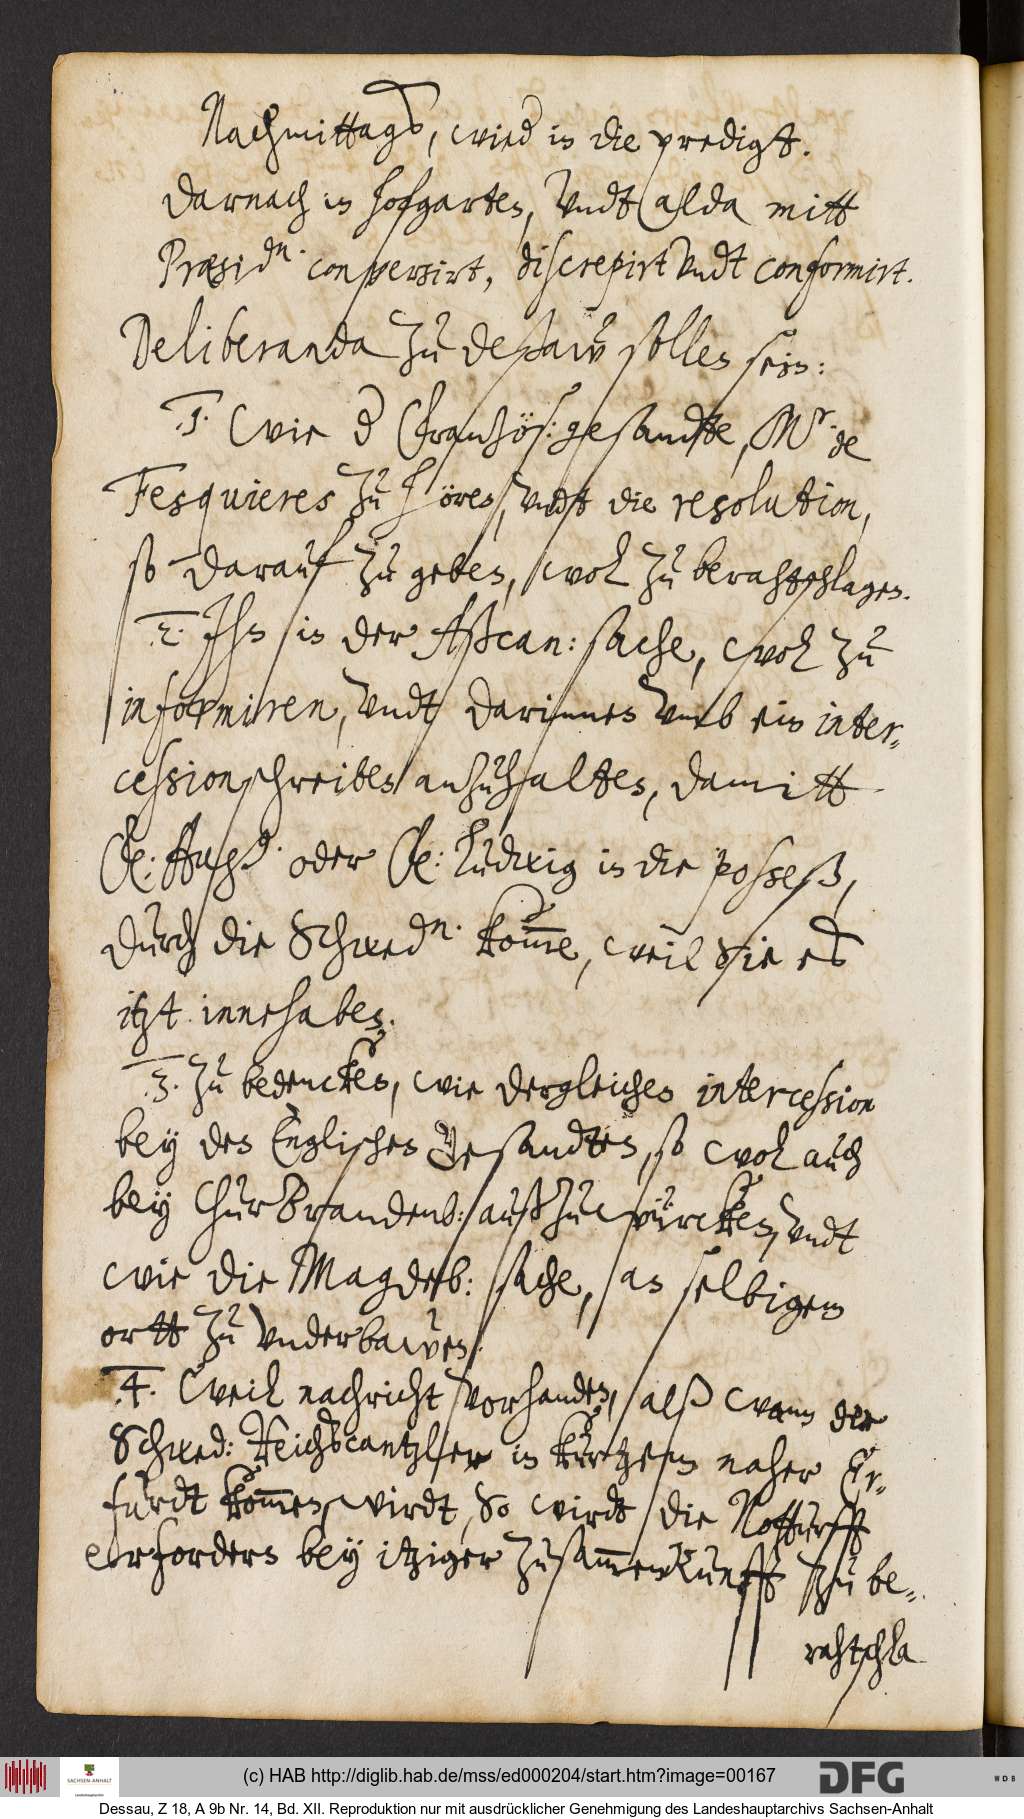 Nachmittags, wied in die predigt.
Darnach in hofgarten, undt alda mitt
Præsid.n conversirt, discrepirt undt conformirt.
Deliberanda zu Deßaw sollen sein:
1. Wie d Frantzös: gesandte, Mr. de
Fesquieres zu hören, undt die resolution,
so darauf zu geben, wol zu berahtschlagen.
2. Ihn in der Aßcan: sache, wol zu
informiren, undt darinnen umb ein inter-
cessionschreiben anzuhalten, damitt
F: Aug. oder F: Ludwig in die posseß,
durch die Schwed.n komme, weil Sie es
itzt innehaben.
3. Zu bedencken, wie dergleichen intercession
bey den Englischen Gesandten, so wol auch
bey ChurBrandenb: außzuwürcken, undt
wie die Magdeb: sache, an selbigem
ortt zu underbawen.
4. Weil nachricht vorhanden, alß wann der
Schwed: Reichscantzler in kurtzem naher Er-
furdt kommen wirdt, So wirdt die Notturfft
erfordern bey itziger Zusammenkunfft zu be-
rahtschla
(c) HAB http://diglib.hab.de/mss/ed000204/start.htm?image=00167
SACHSEN-ANHALT
DFG
WDB
Dessau, Z 18, A 9b Nr. 14, Bd. XII. Reproduktion nur mit ausdrücklicher Genehmigung des Landeshauptarchivs Sachsen-Anhalt